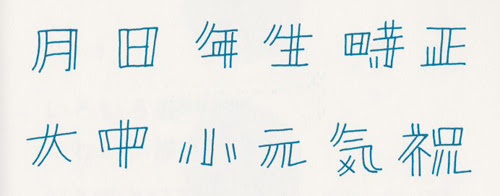 月日年生時正
大中小元気祝